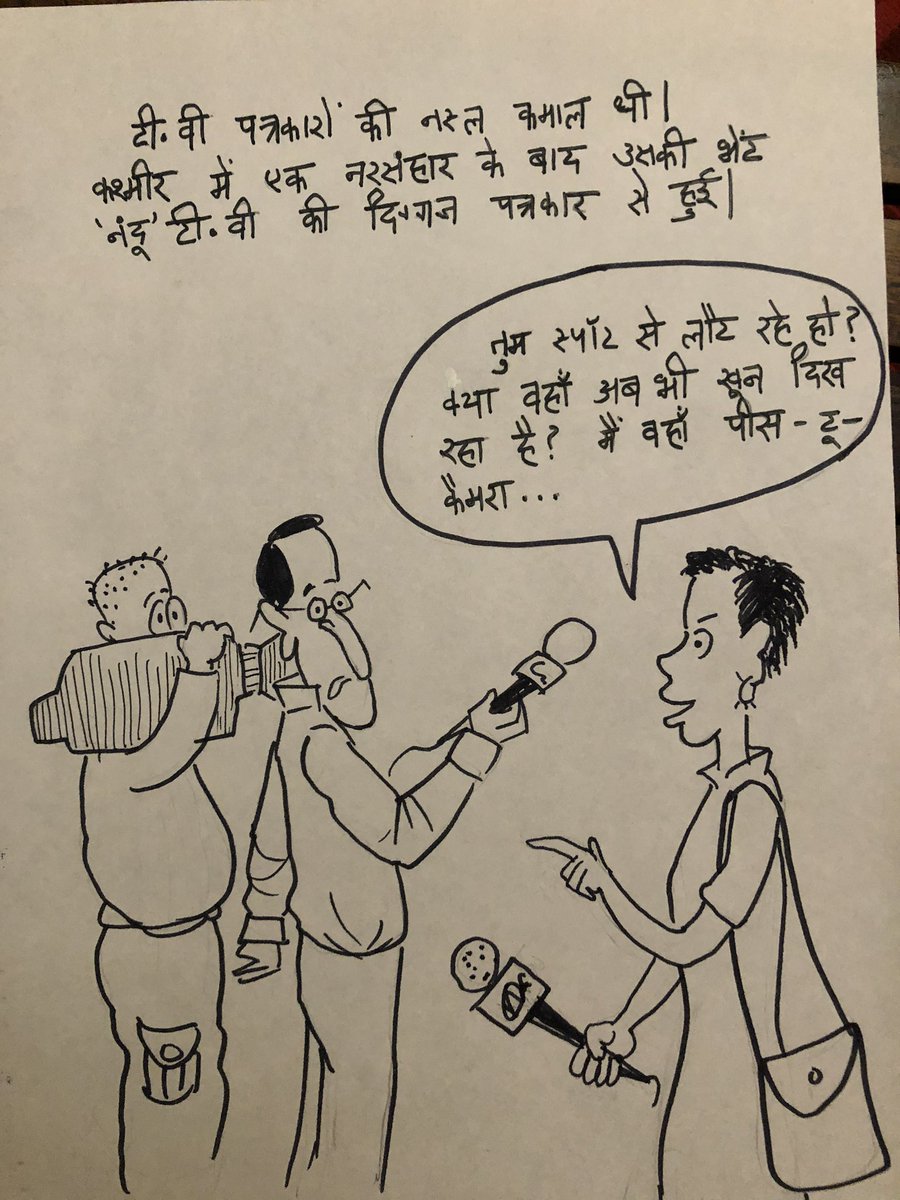 टी.वी पत्रकारों की नस्ल कमाल थी।
कश्मीर में एक नरसंहार के बाद उसकी भेंट
'नंदू' टी.वी की दिग्गज पत्रकार से हुई।
तुम स्पॉट से लौट रहे हो?
क्या वहाँ अब भी खून दिख
रहा है? मैं वहाँ पीस-टू-
कैमरा...